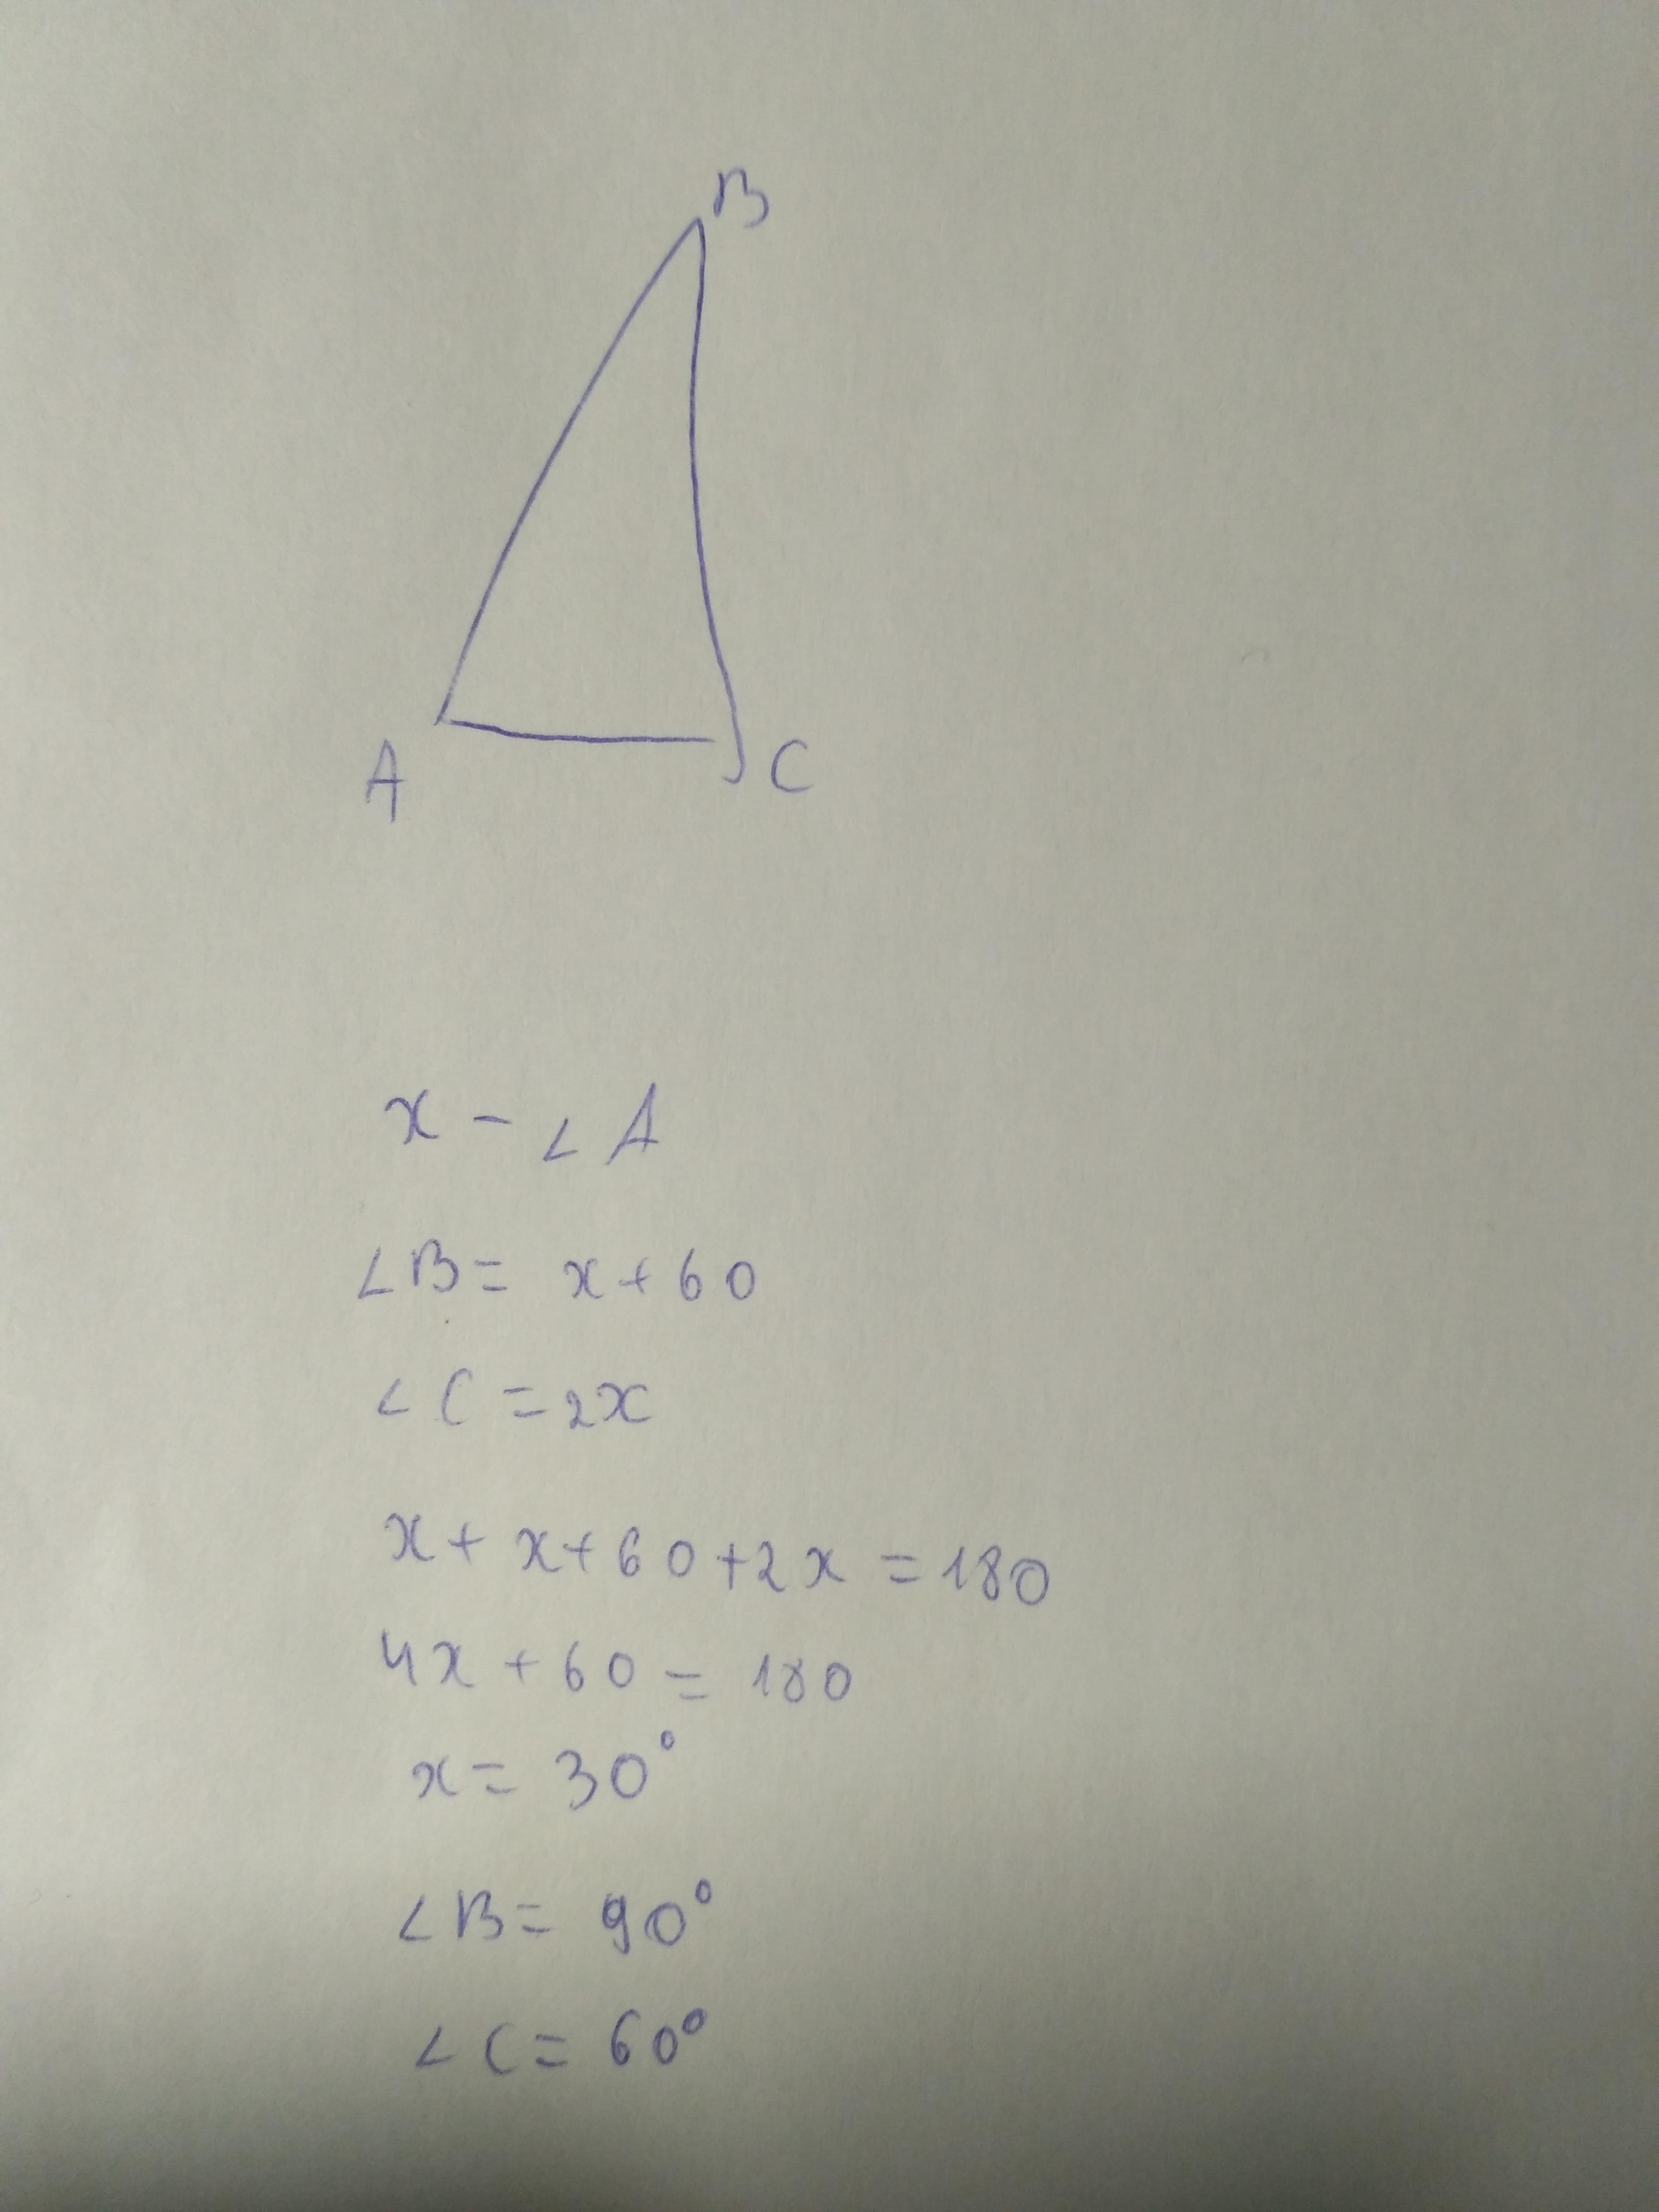 B
A C
x - ∠A
∠B = x + 60
∠C = 2x
x + x + 60 + 2x = 180
4x + 60 = 180
x = 30°
∠B = 90°
∠C = 60°